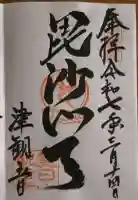 奉拝 令和七年三月十四日
毘沙門天
津観音